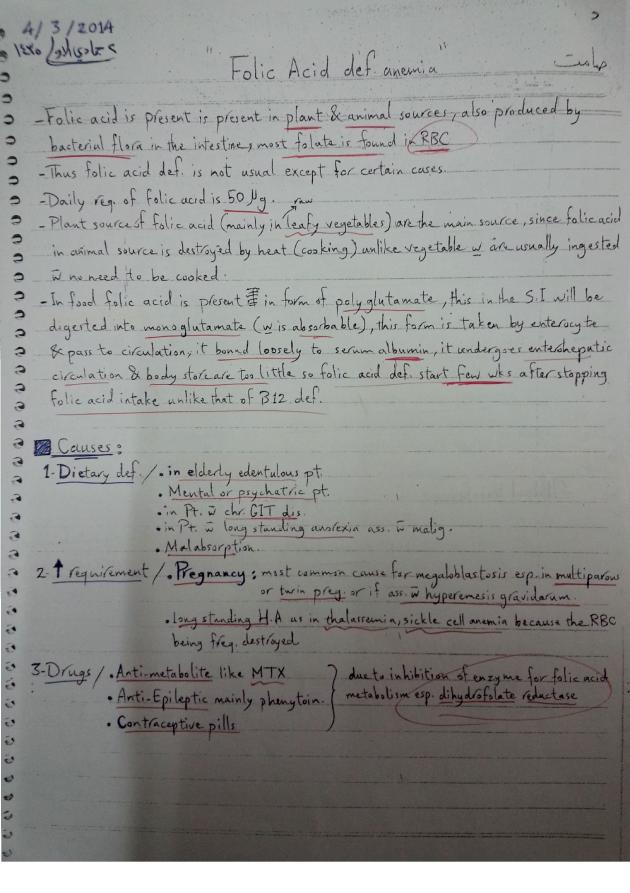 4/3/2014
" Folic Acid def. anemia "
-Folic acid is present is present in plant & animal sources, also produced by
bacterial flora in the intestine, most folate is found in RBC
-Thus folic acid def. is not usual except for certain cases.
-Daily req. of folic acid is 50 μg.
raw
-Plant source of folic acid (mainly in leafy vegetables) are the main source, since folic acid
in animal source is destroyed by heat (cooking) unlike vegetable w̲ are usually ingested
w̄ no need to be cooked.
-In food folic acid is present in form of polyglutamate, this in the S.I will be
digested into monoglutamate (w is absorbable), this form is taken by enterocyte
& pass to circulation, it bound loosely to serum albumin, it undergoes enterohepatic
circulation & body store are too little so folic acid def. start few wks after stopping
folic acid intake unlike that of B12 def.
Causes:
1-Dietary def. / • in elderly edentulous pt.
• Mental or psychatric pt.
• in Pt. w̄ chr. GIT dis.
• in Pt. w̄ long standing anorexia ass. w̄ malig.
• Malabsorption.
2-↑ requirement / • Pregnancy: most common cause for megaloblastosis esp. in multiparous
or twin preg. or if ass. w̄ hyperemesis gravidarum.
• long standing H.A as in thalassemia, sickle cell anemia because the RBC
being freq. destroyed
3-Drugs / • Anti-metabolite like MTX
• Anti-Epileptic mainly phenytoin.
• Contraceptive pills
due to inhibition of enzyme for folic acid
metabolism esp. dihydrofolate reductase